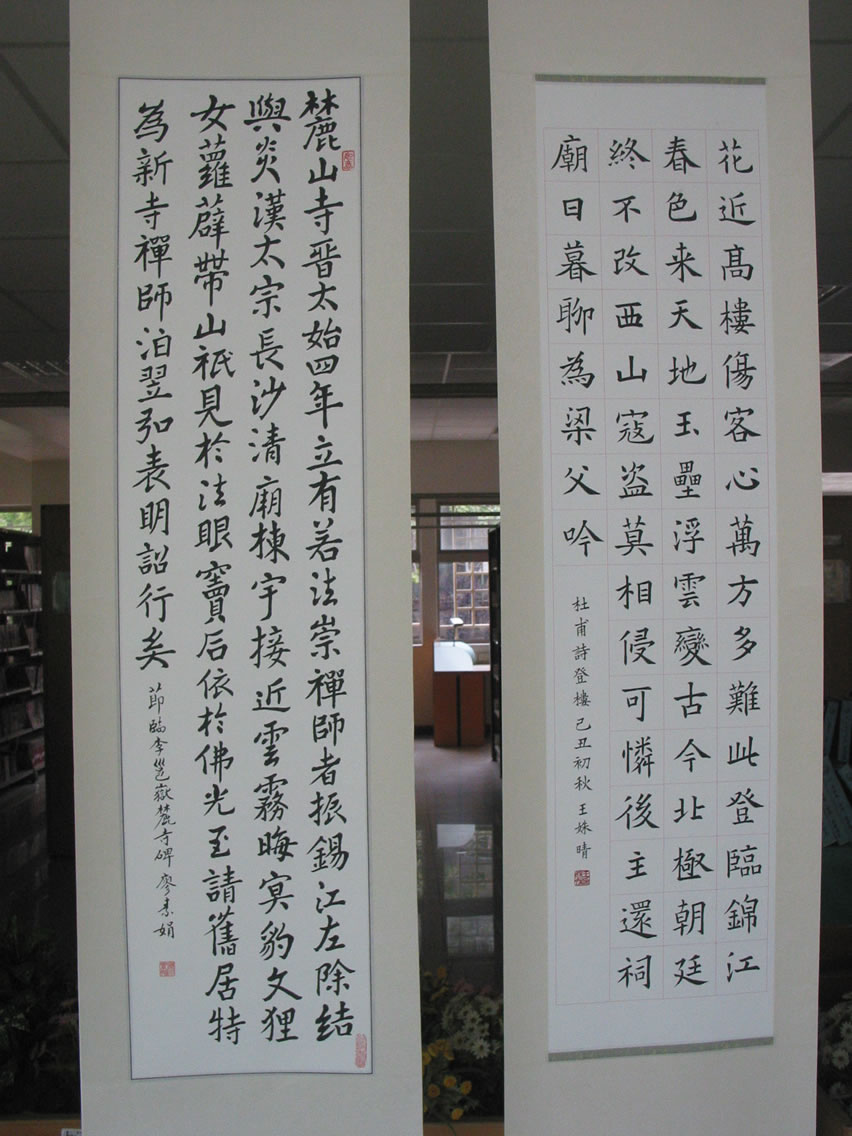 花近高樓傷客心萬方多難此登臨錦江
春色来天地玉壘浮雲變古今北極朝廷
終不改西山寇盗莫相侵可憐後主還祠
廟日暮聊為梁父吟
杜甫詩登樓己丑初秋王姝晴
麓山寺晉太始四年立有若法崇禪師者振錫江左除結
與炎漢太宗長沙清廟棟宇接近雲霧晦冥豹文狸
女蘿薜帶山祇見於法眼竇后依於佛光至請舊居特
為新寺禪師洎翌弘表明詔行矣
節臨李邕嶽麓寺碑廖素娟